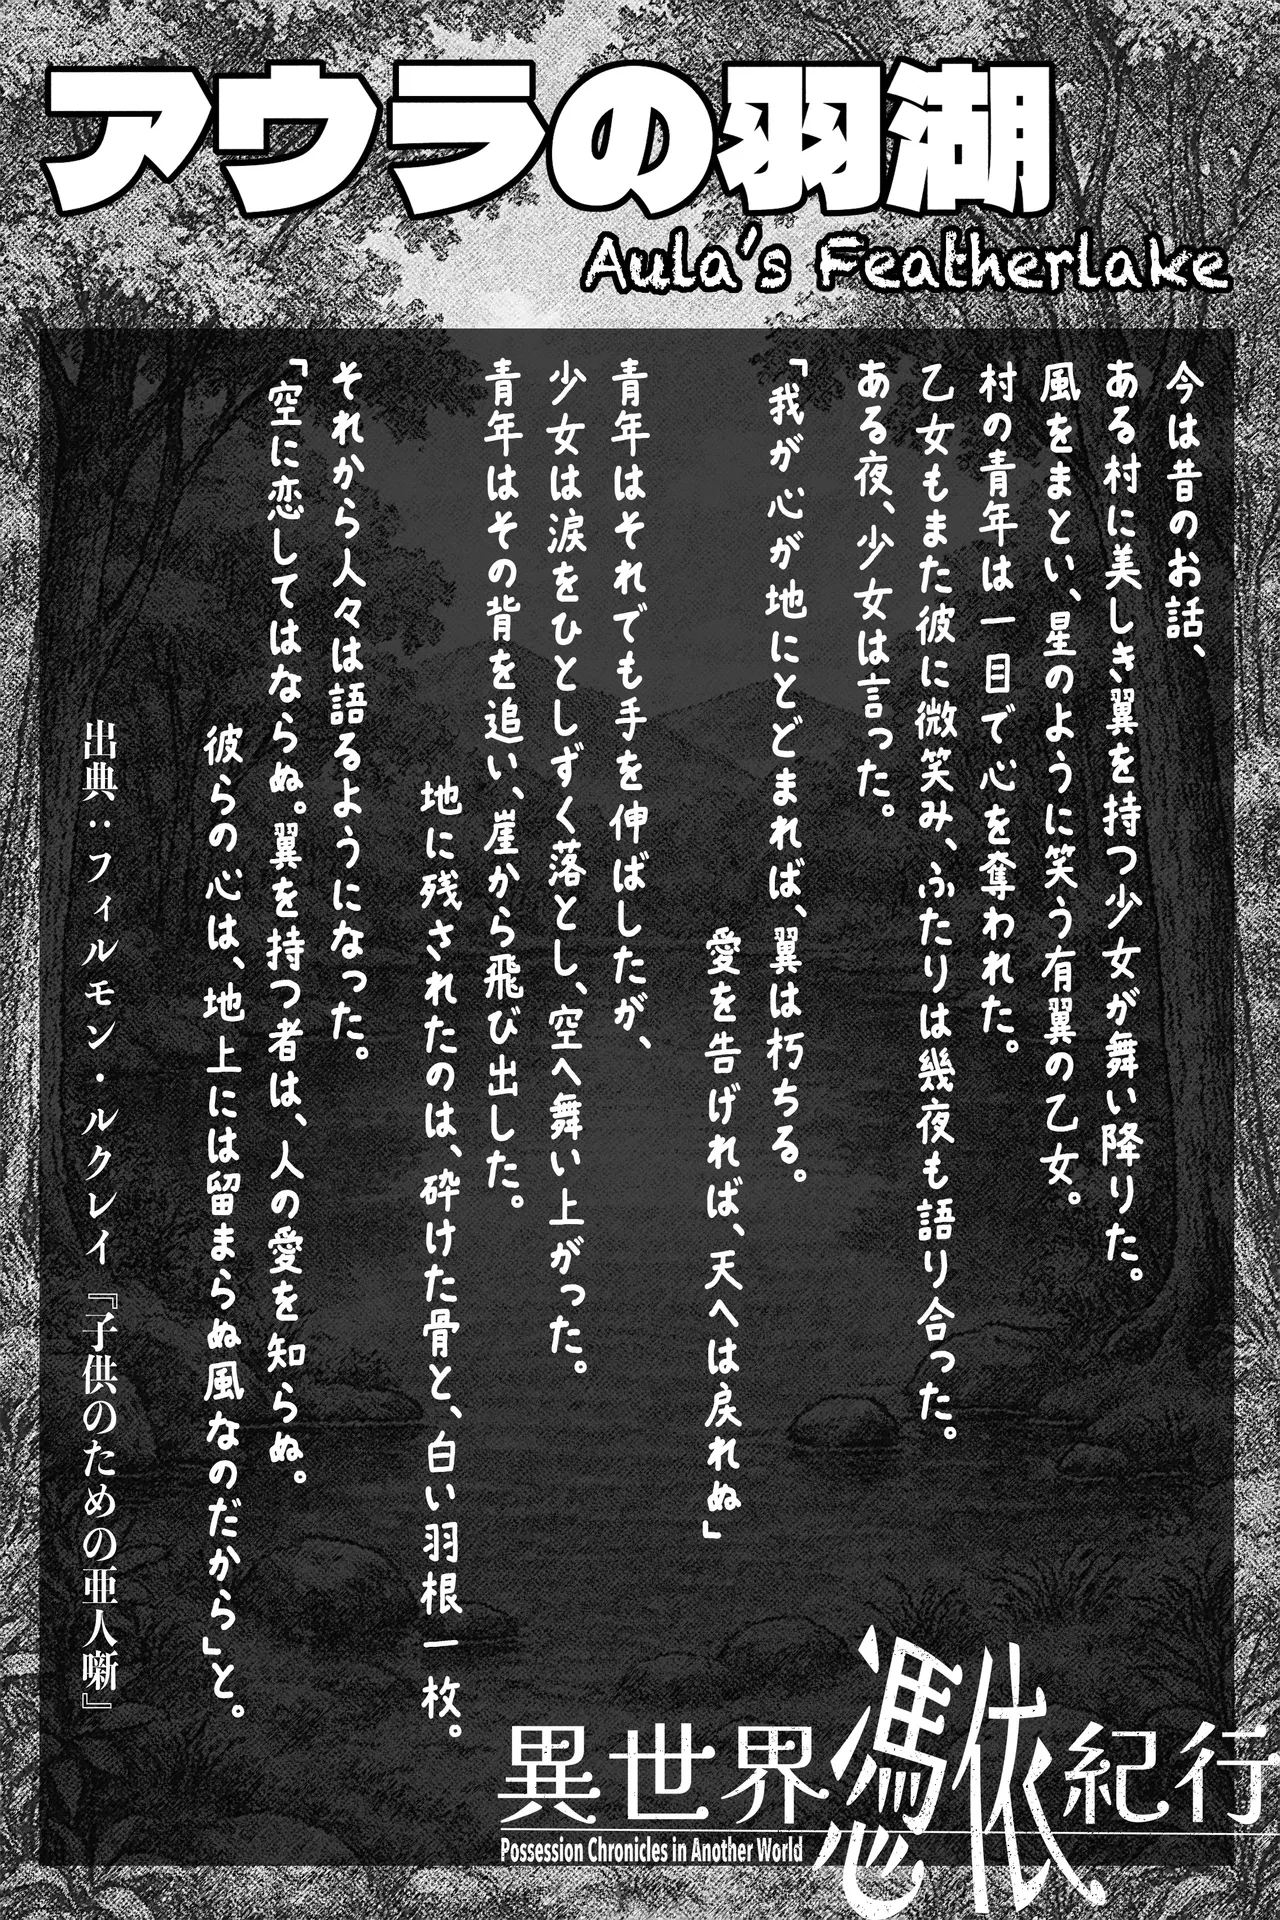 アウラの羽湖
Aula's Featherlake
今は昔のお話、
ある村に美しき翼を持つ少女が舞い降りた。
風をまとい、星のように笑う有翼の乙女。
村の青年は一目で心を奪われた。
乙女もまた彼に微笑み、ふたりは幾夜も語り合った。
ある夜、少女は言った。
「我が心が地にとどまれば、翼は朽ちる。
愛を告げれば、天へは戻れぬ」
青年はそれでも手を伸ばしたが、
少女は涙をひとしずく落とし、空へ舞い上がった。
青年はその背を追い、崖から飛び出した。
地に残されたのは、砕けた骨と、白い羽根一枚。
それから人々は語るようになった。
「空に恋してはならぬ。翼を持つ者は、人の愛を知らぬ。
彼らの心は、地上には留まらぬ風なのだから」と。
出典：フィルモン・ルクレイ『子供のための亜人噺』
異世界憑依紀行
Possession Chronicles in Another World